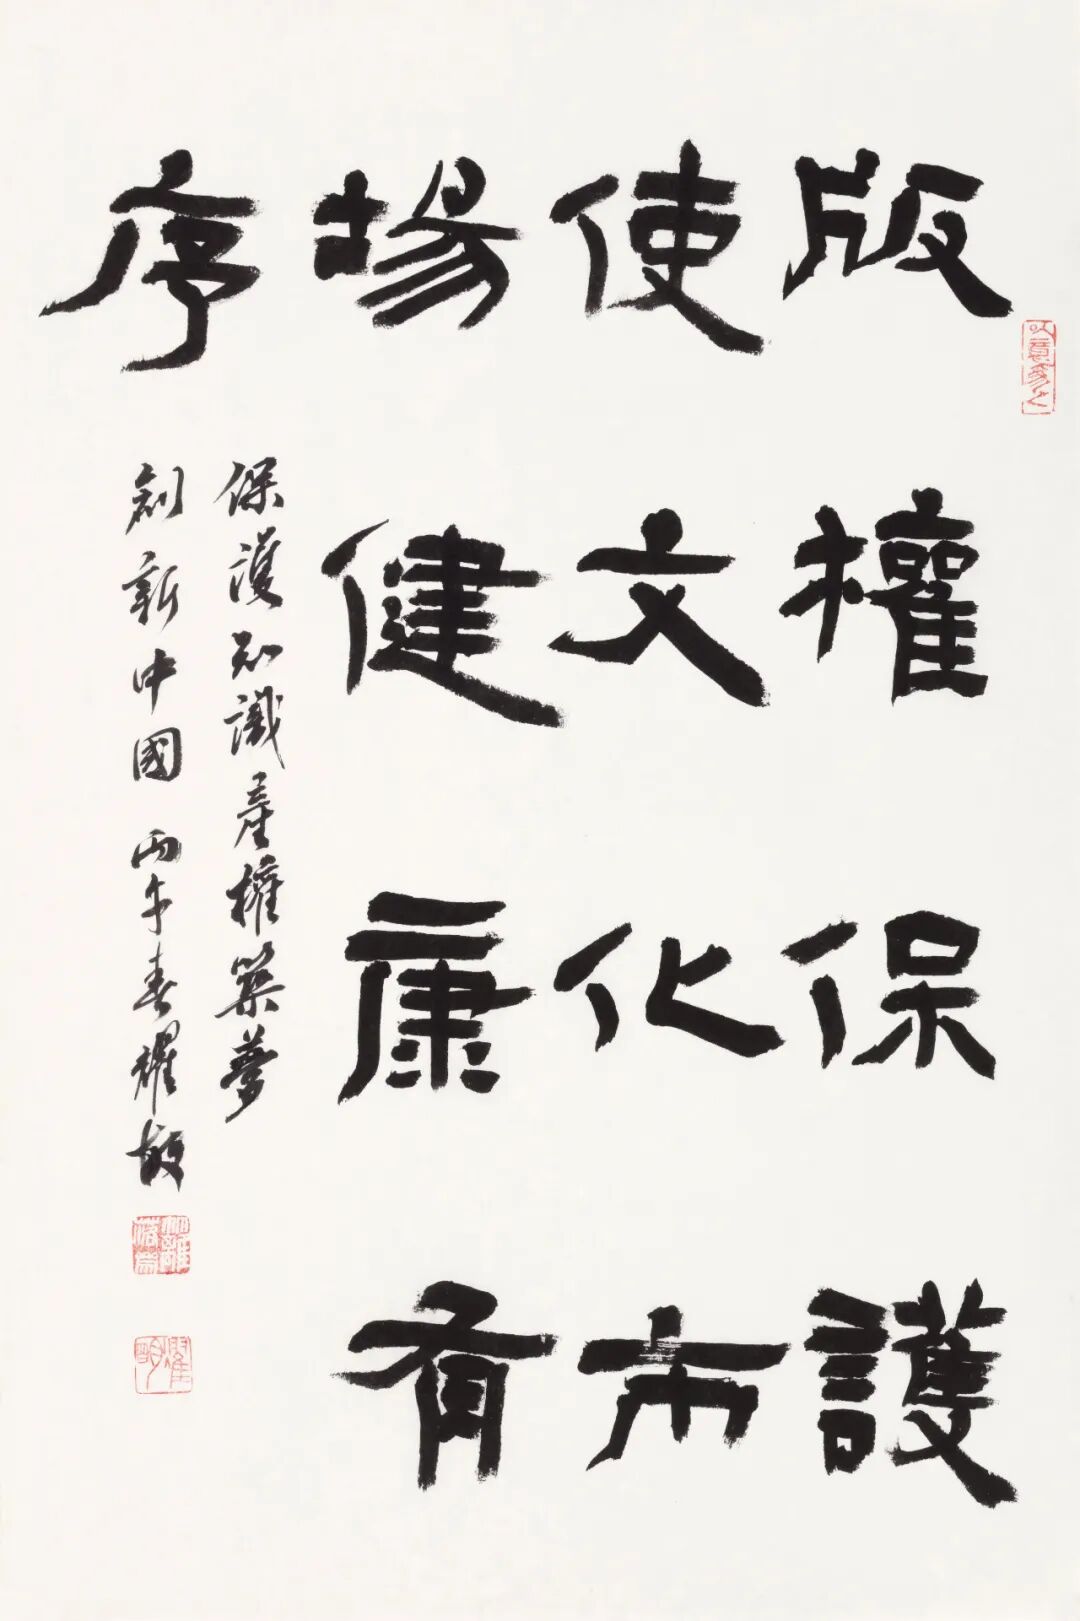 版權保護
使文化市
場健康有
序
保護知識產權築夢
創新中國 丙午春耀